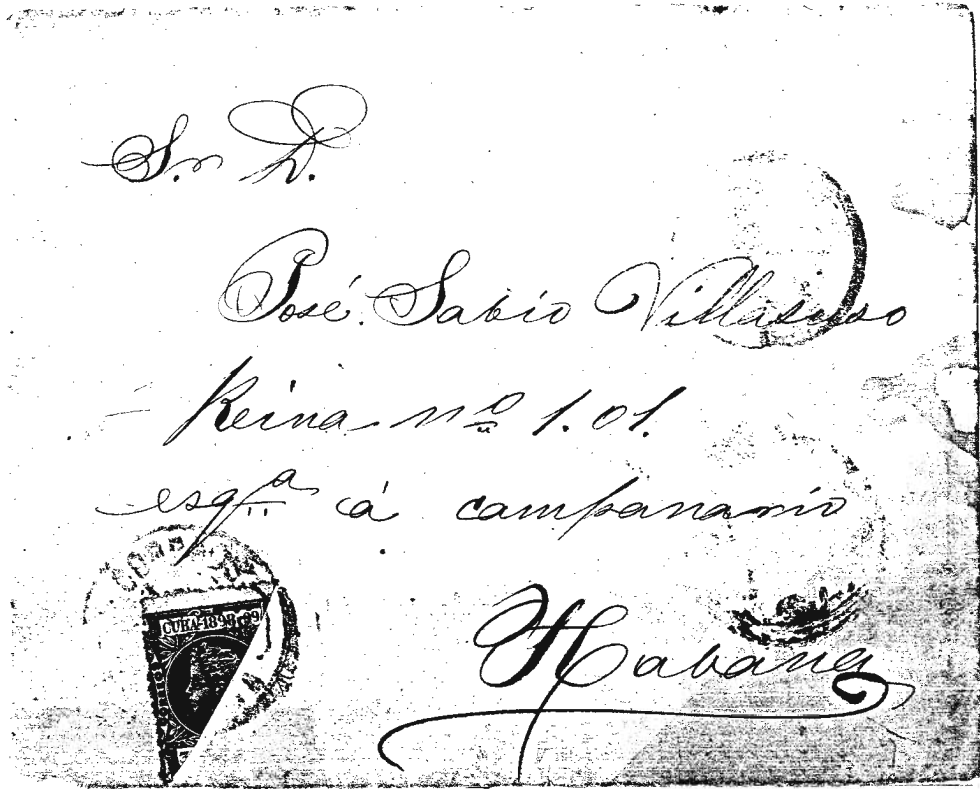 Sr. D.
José Sabio Villasuso
Reina nº 101.
esqª á campanario
Habana
CUBA 1898 99